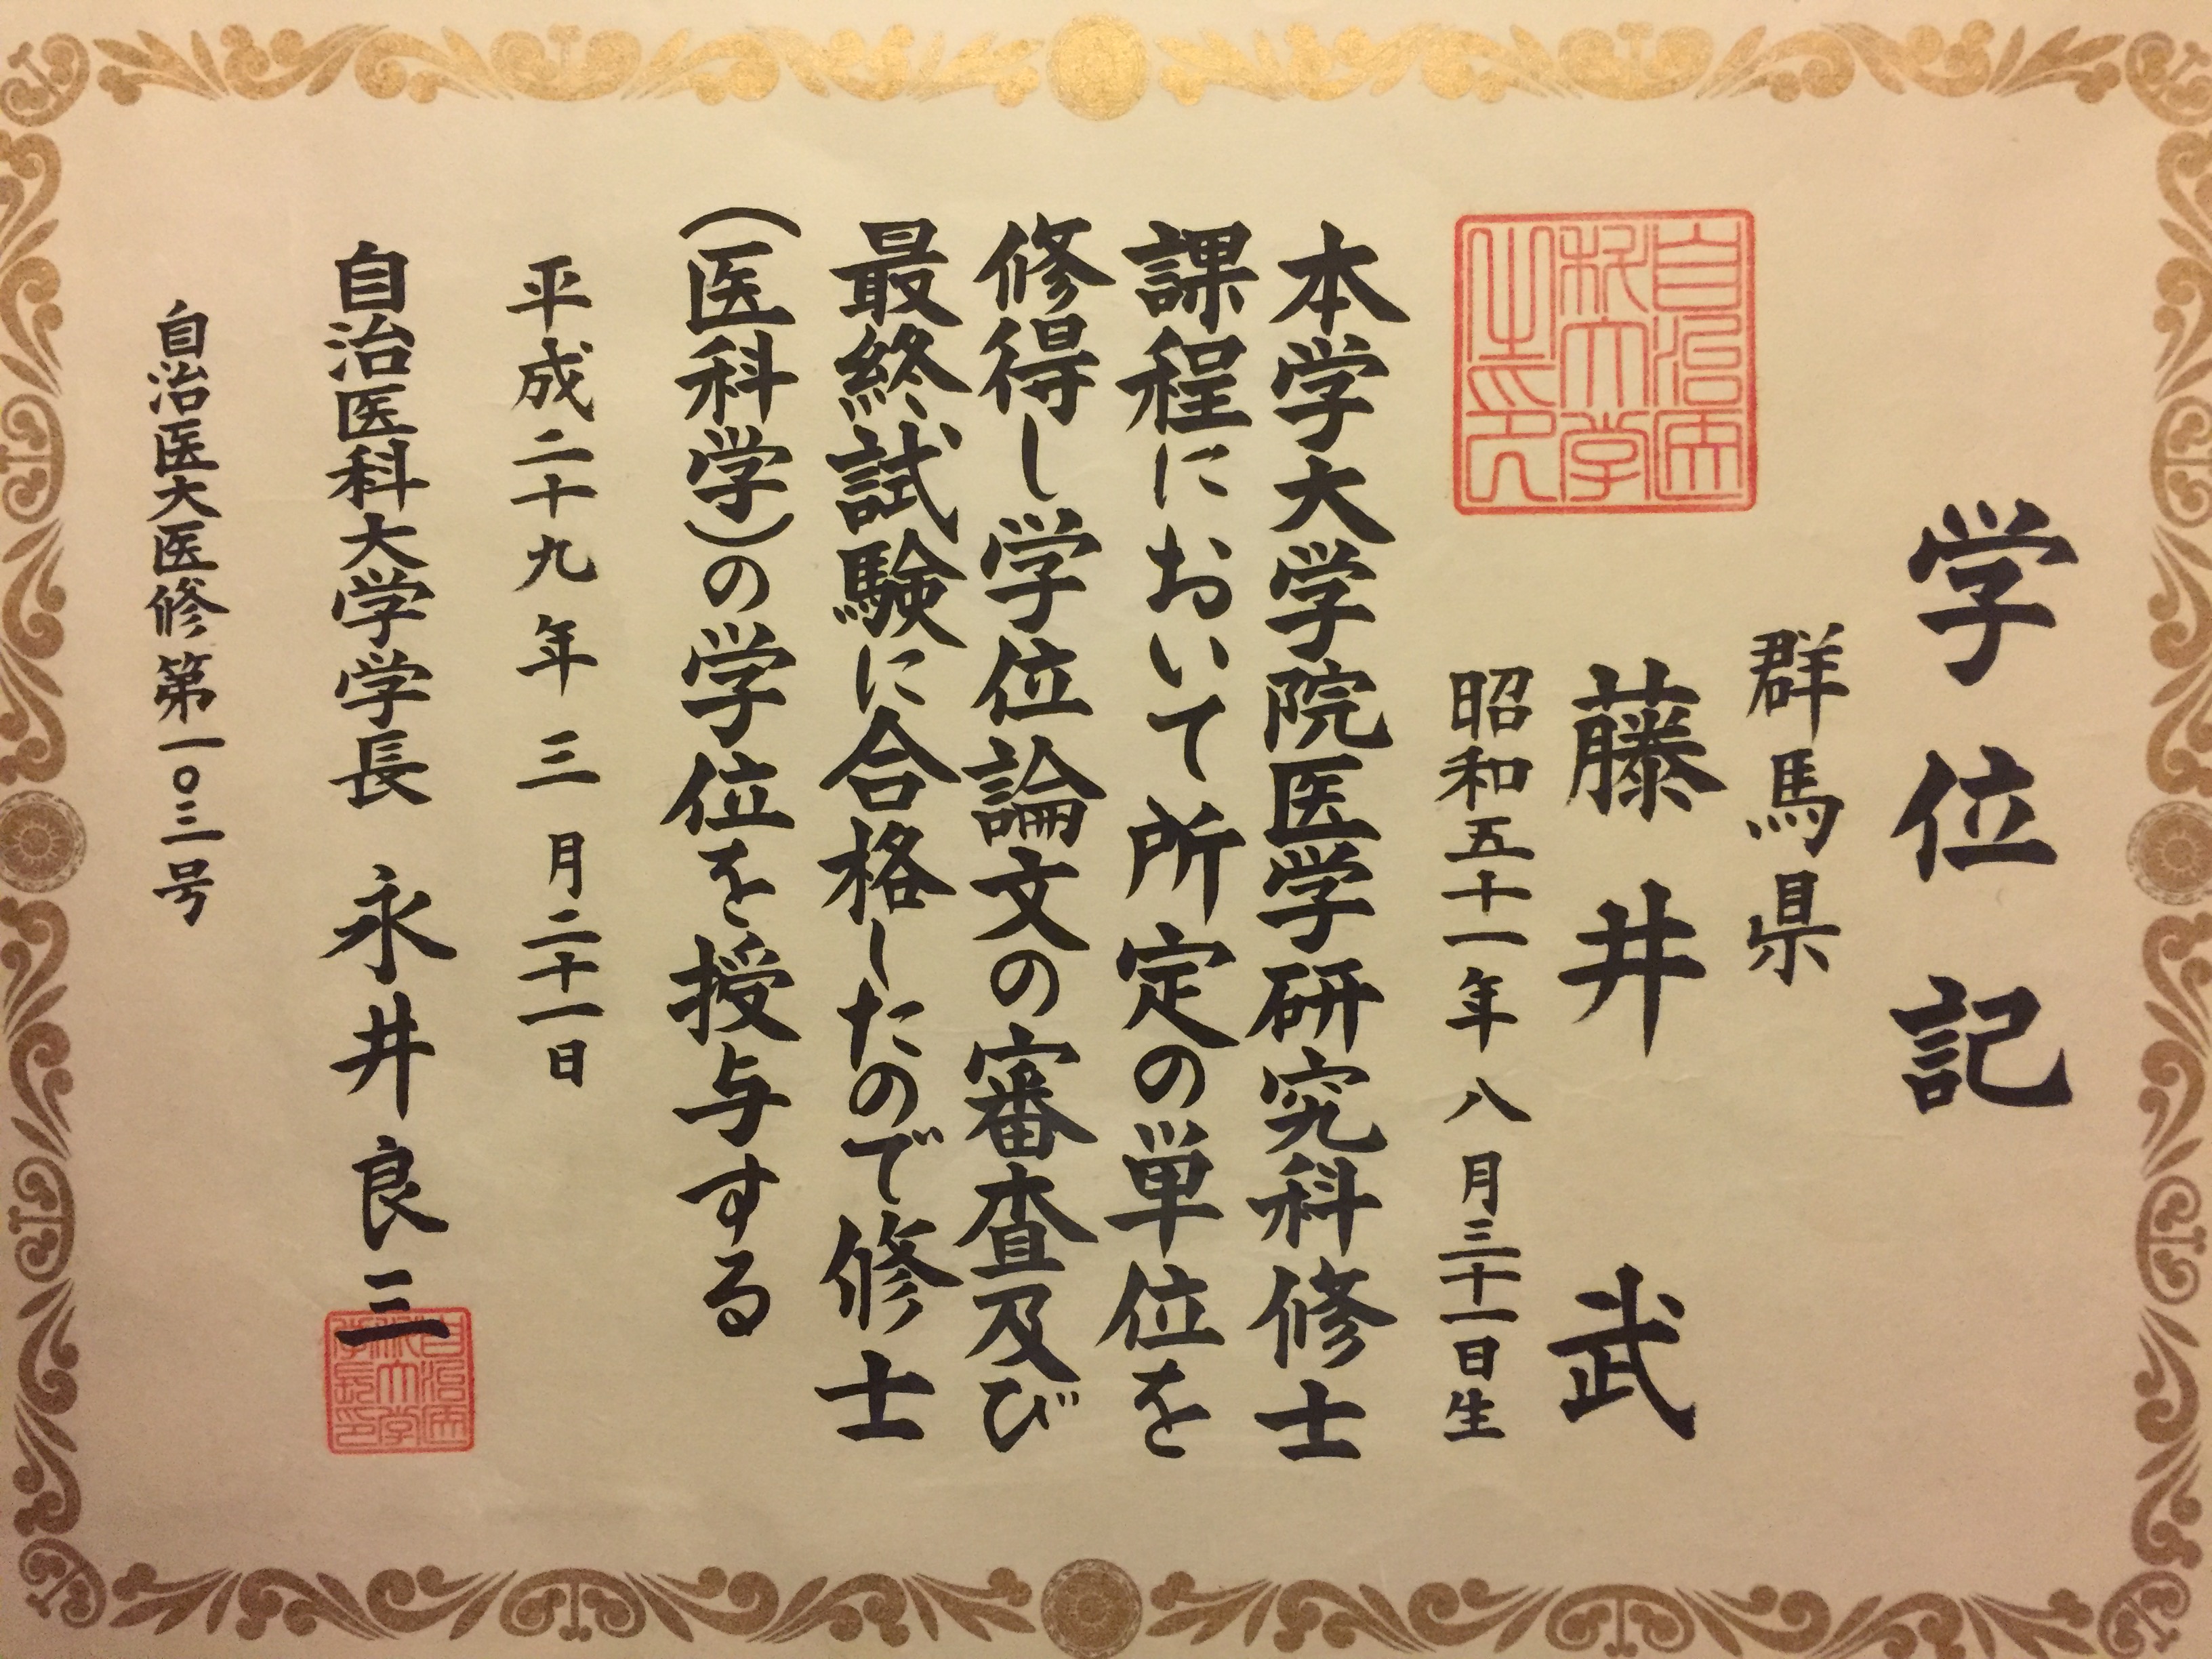 学位記
群馬県
藤井武
昭和五十一年八月三十一日生
自治医科大学之印
本学大学院医学研究科修士
課程において所定の単位を
修得し学位論文の審査及び
最終試験に合格したので修士
(医科学)の学位を授与する
平成二十九年三月二十一日
自治医科大学学長 永井良三
自治医科大学学長印
自治医大医修第一〇三号